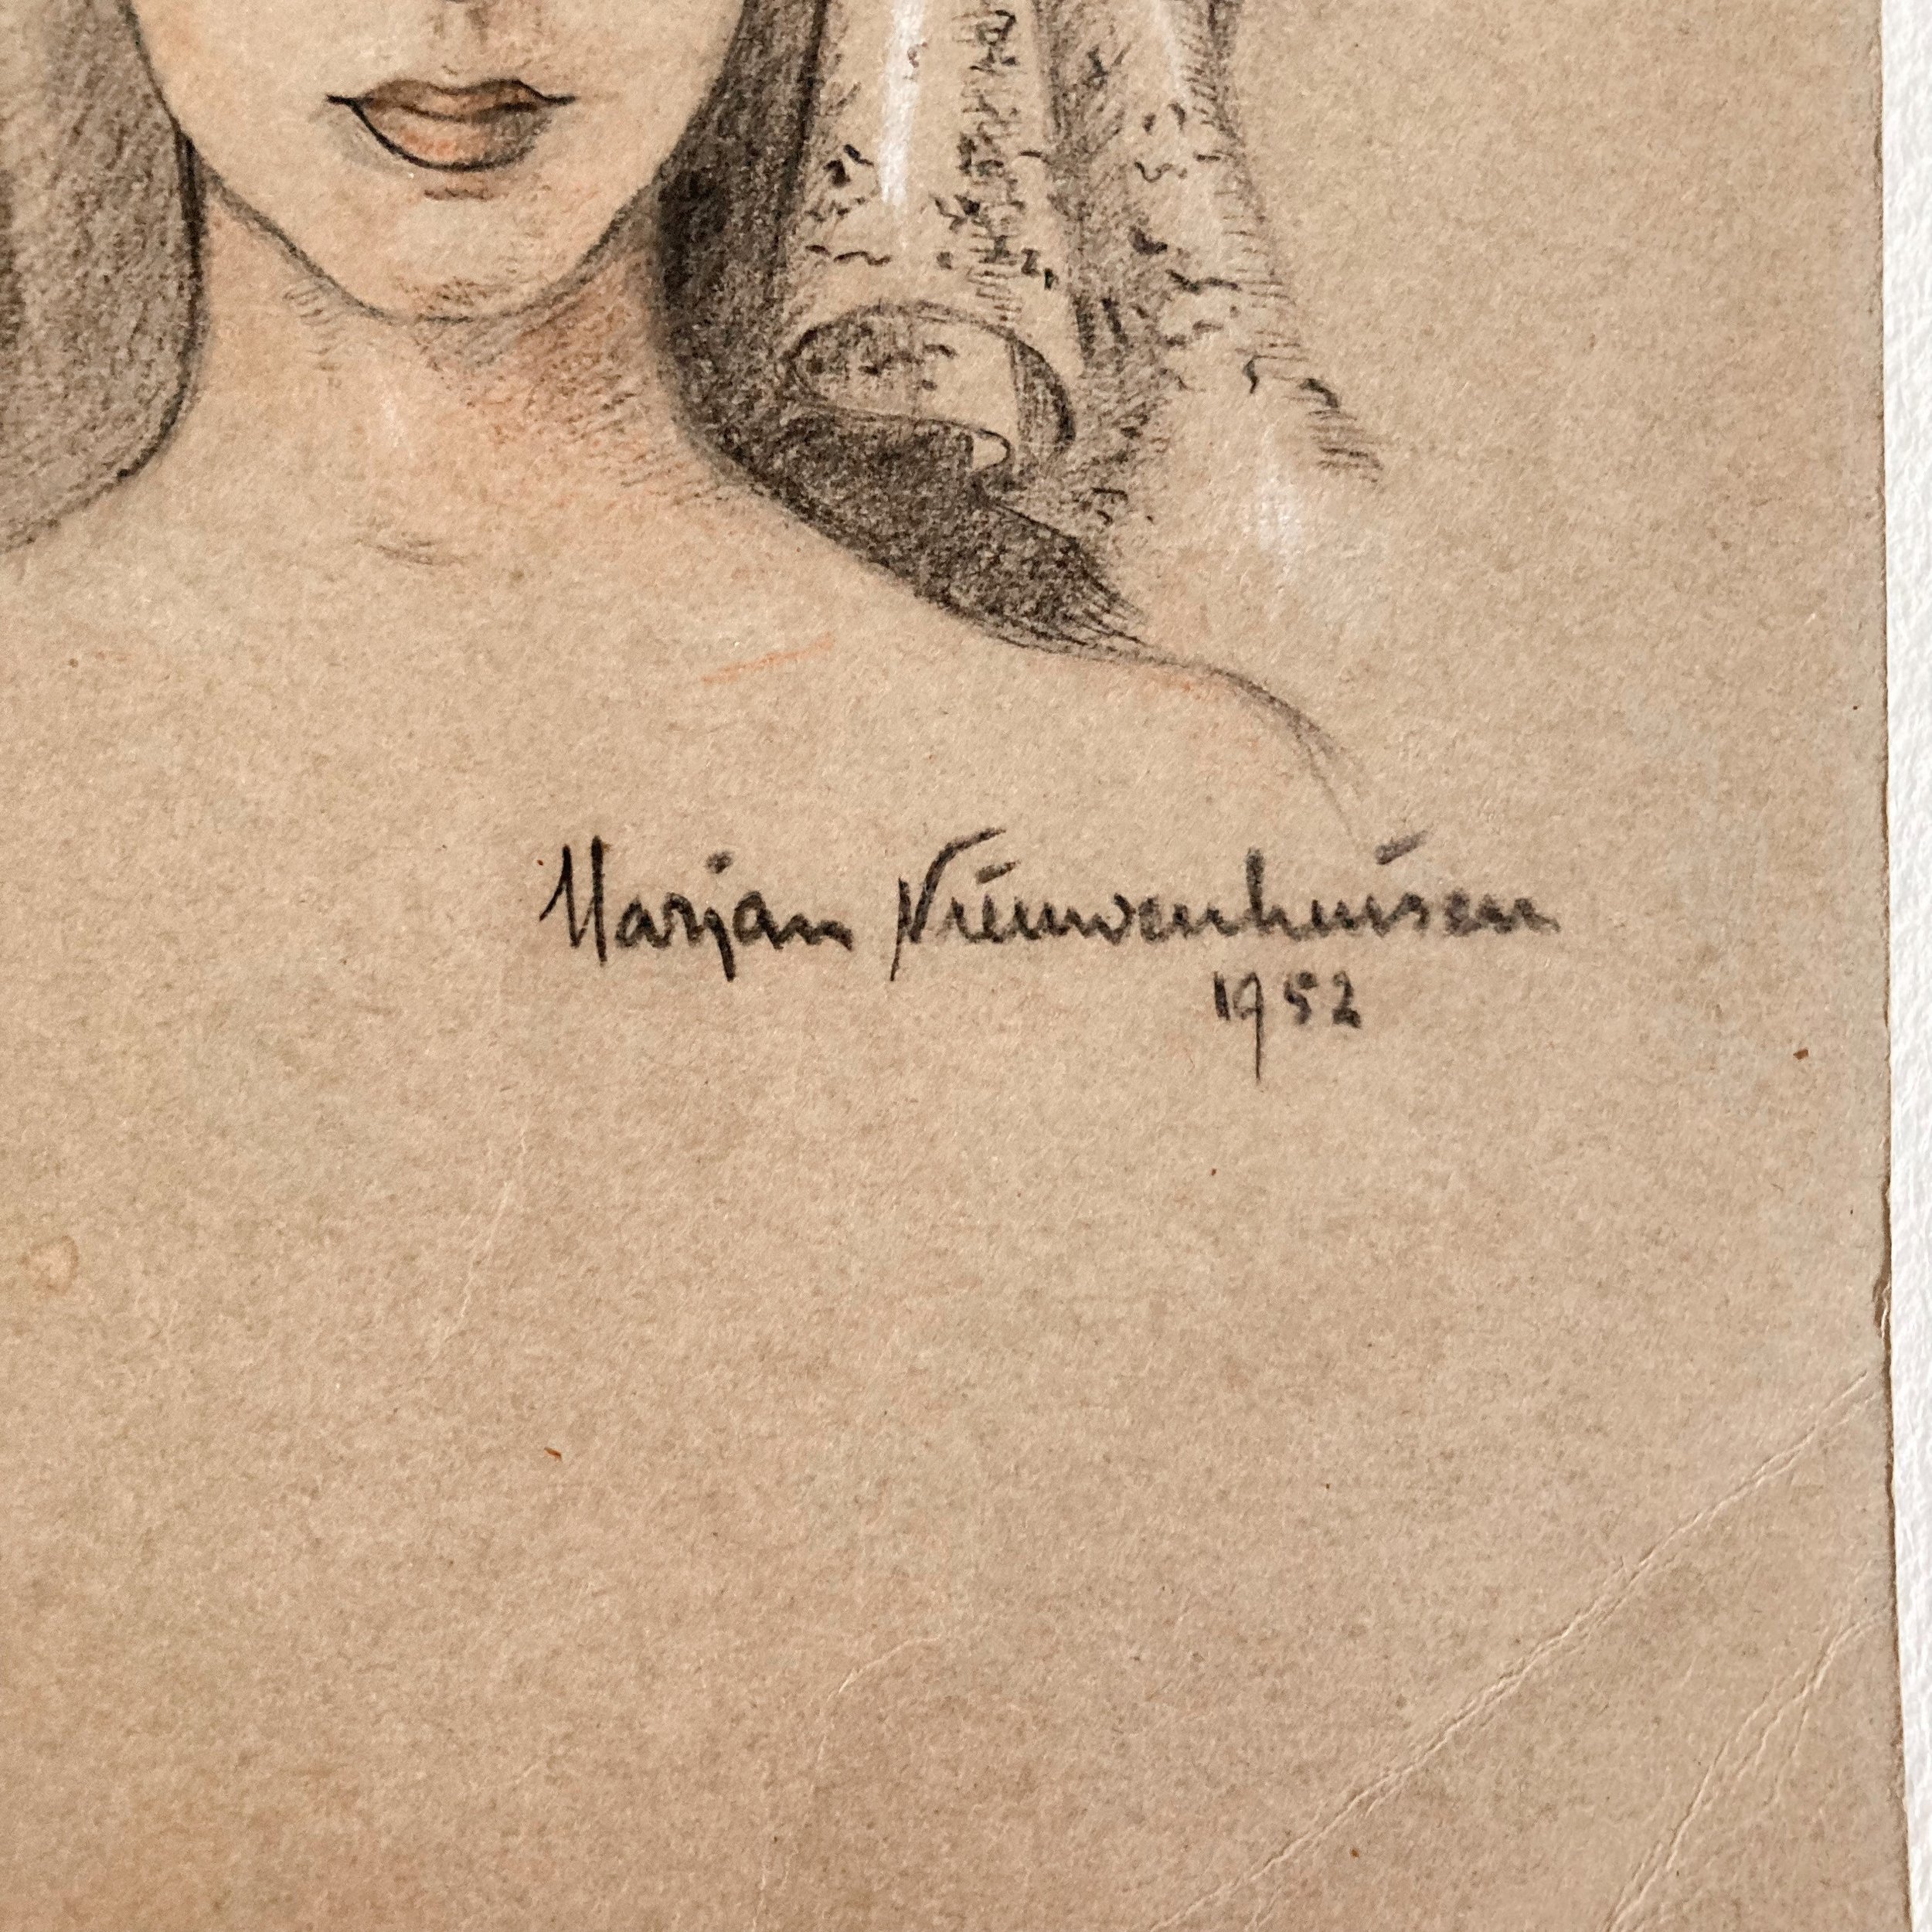 Marjan Nieuwenhuisen
1952